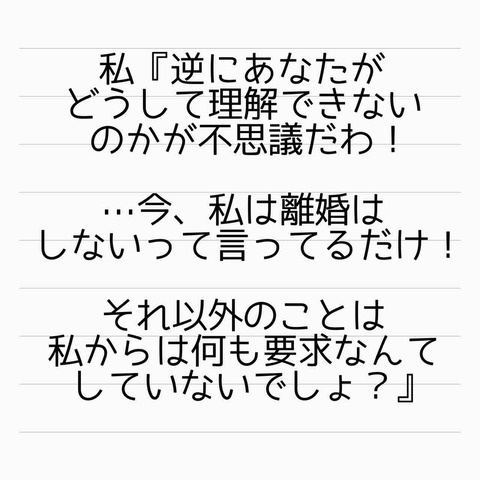 私『逆にあなたが
どうして理解できない
のかが不思議だわ！
…今、私は離婚は
しないって言ってるだけ！
それ以外のことは
私からは何も要求なんて
していないでしょ？』